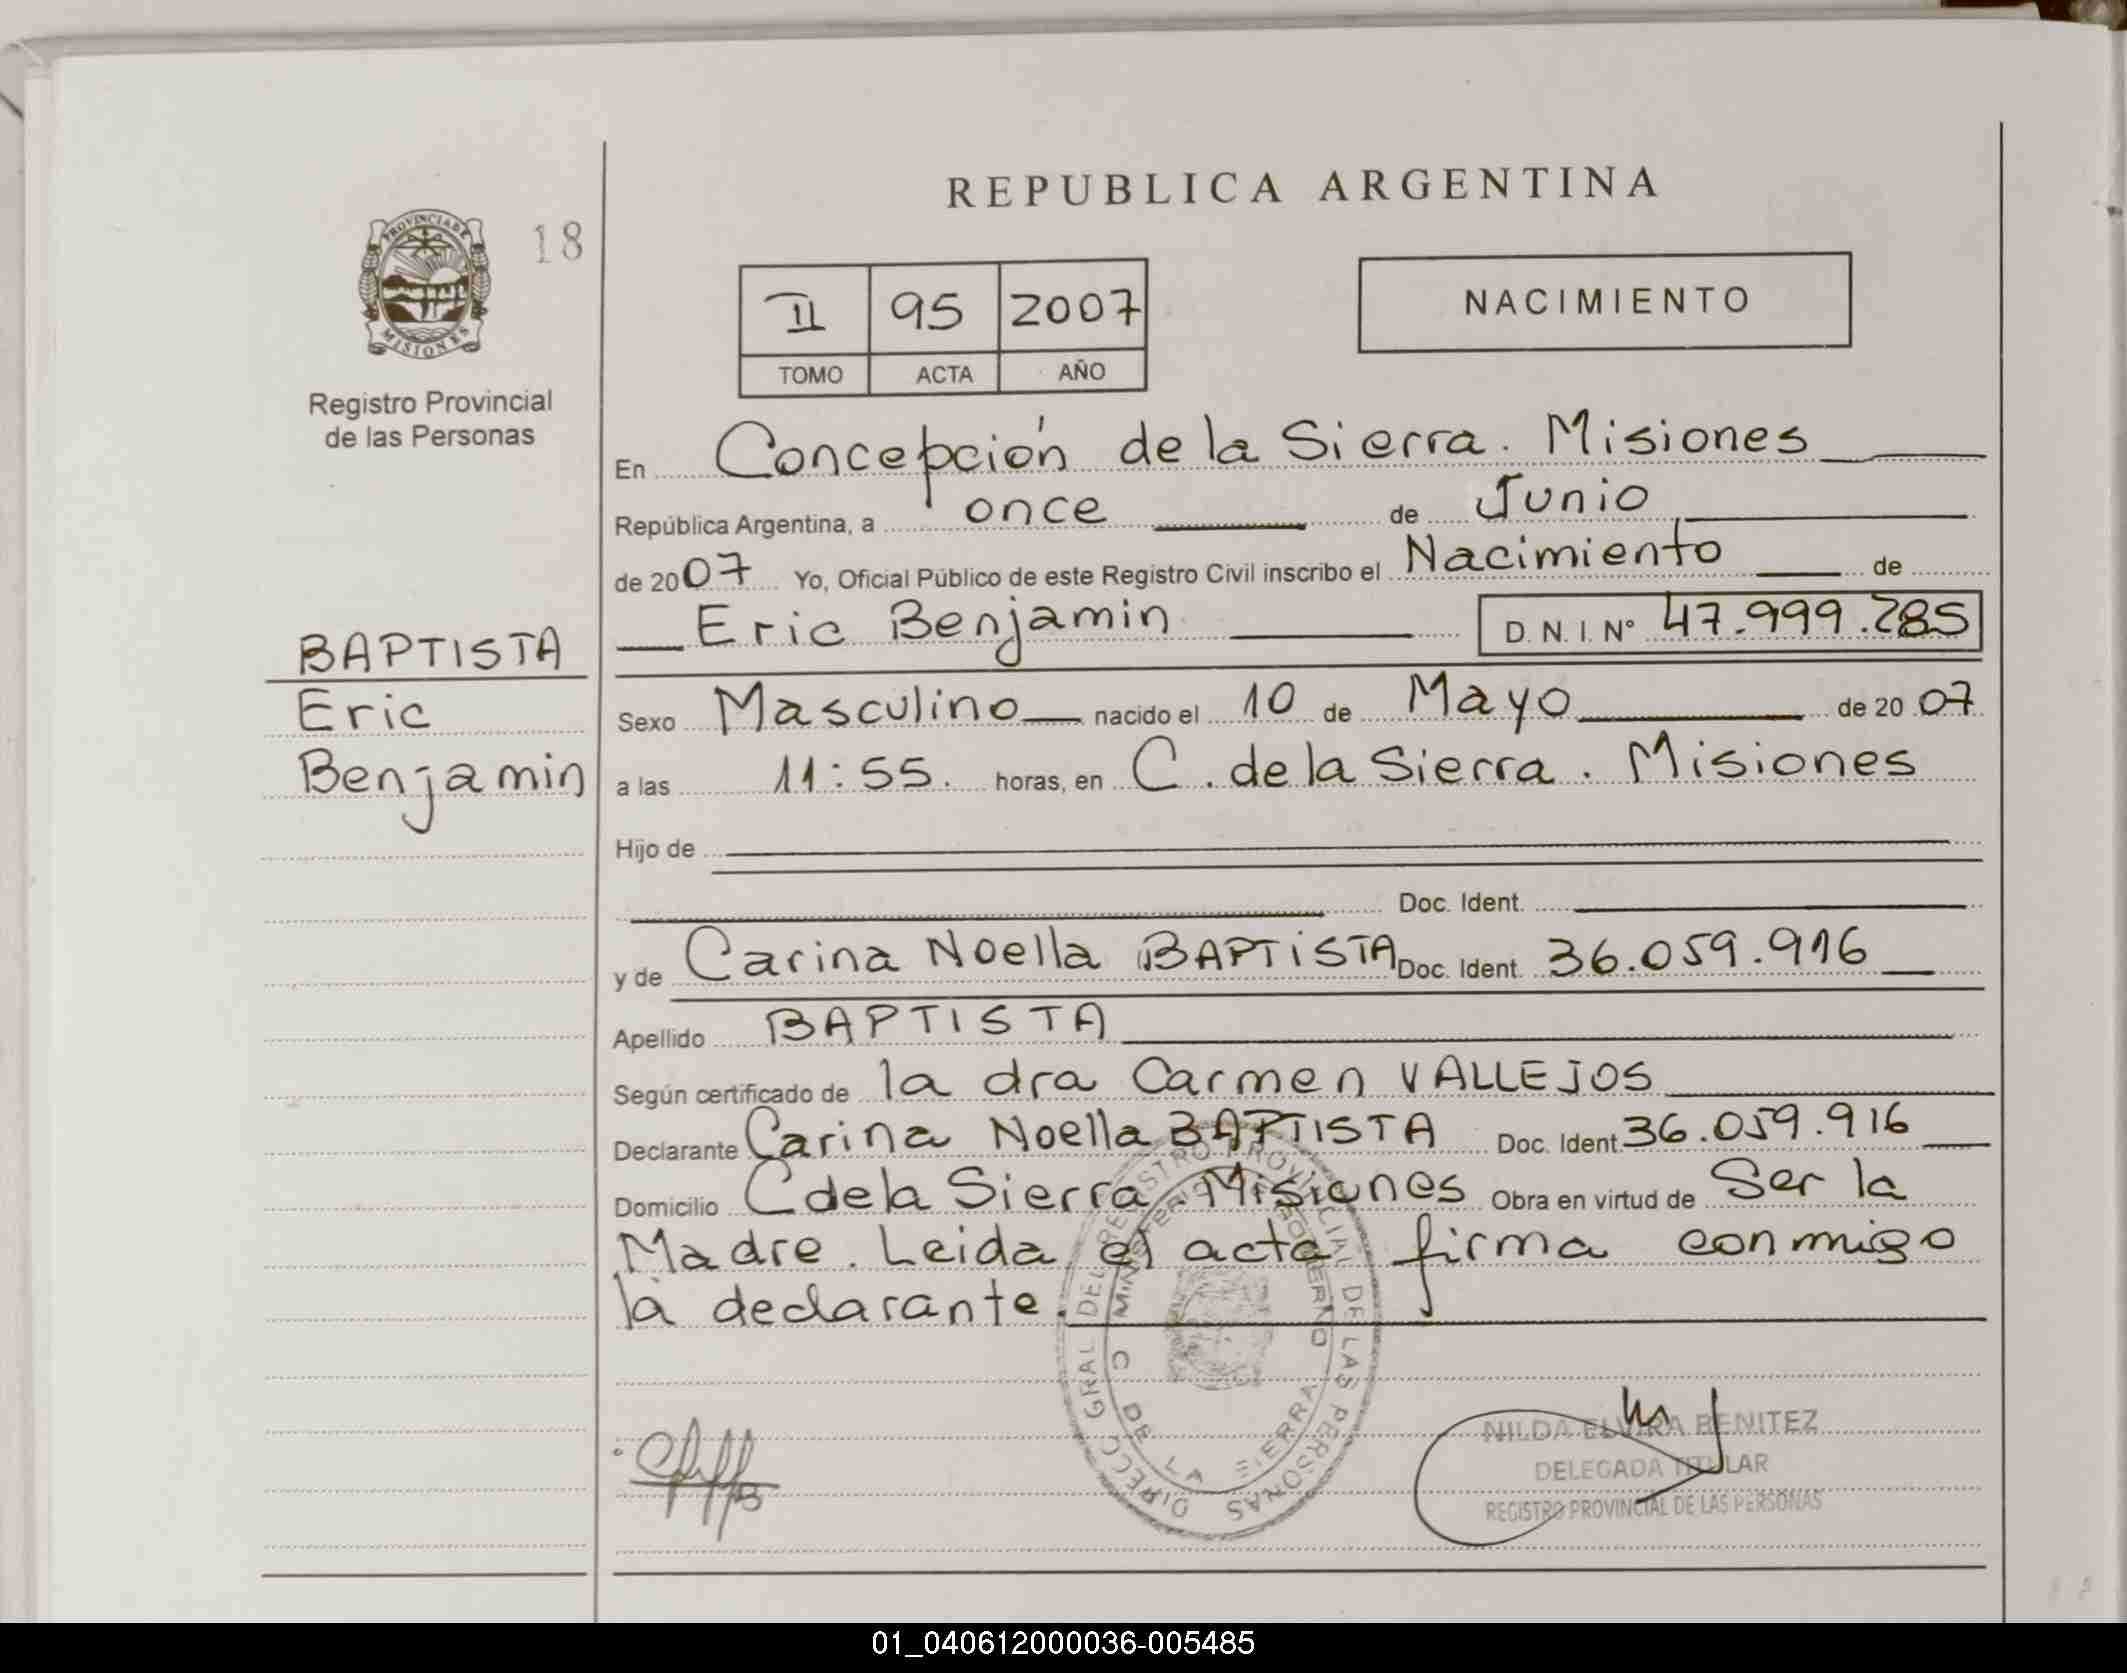 REPUBLICA ARGENTINA
PROVINCIA DE
MISIONES
18
Registro Provincial
de las Personas
II 95 2007
TOMO ACTA AÑO
NACIMIENTO
En Concepción de la Sierra. Misiones
República Argentina, a once de Junio
de 2007 Yo, Oficial Público de este Registro Civil inscribo el Nacimiento de
Eric Benjamin D. N. I. Nº 47.999.285
BAPTISTA
Eric
Benjamin
Sexo Masculino nacido el 10 de Mayo de 2007
a las 11:55. horas, en C. de la Sierra. Misiones
Hijo de
Doc. Ident.
y de Carina Noella BAPTISTA Doc. Ident. 36.059.916
Apellido BAPTISTA
Según certificado de la dra Carmen VALLEJOS
Declarante Carina Noella BAPTISTA Doc. Ident. 36.059.916
Domicilio C de la Sierra Misiones Obra en virtud de Ser la
Madre. Leida el acta firma conmigo
la declarante.
DIRECC GRAL DEL REGISTRO PROVINCIAL DE LAS PERSONAS
MINISTERIO DE GOBIERNO
C DE LA SIERRA
NILDA ELVIRA BENITEZ
DELEGADA TITULAR
REGISTRO PROVINCIAL DE LAS PERSONAS
01_040612000036-005485